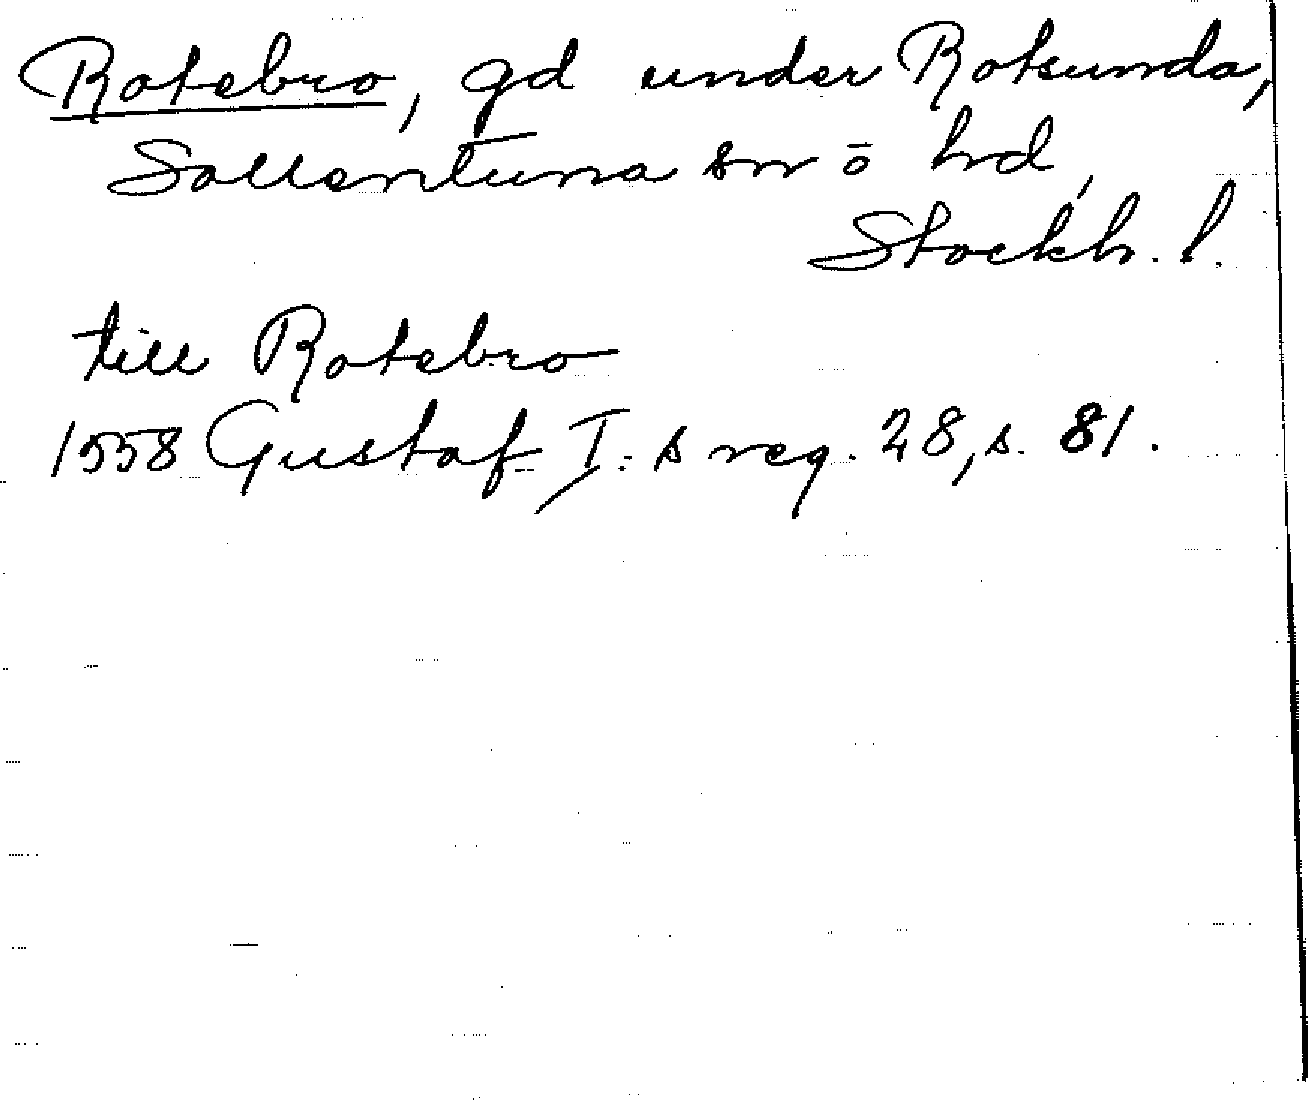 Rotebro, gd under Rotsunda,
Sollentuna sn o hd,
Stockh. l.
till Rotebro
1558 Gustaf I:s reg. 28, s. 81.